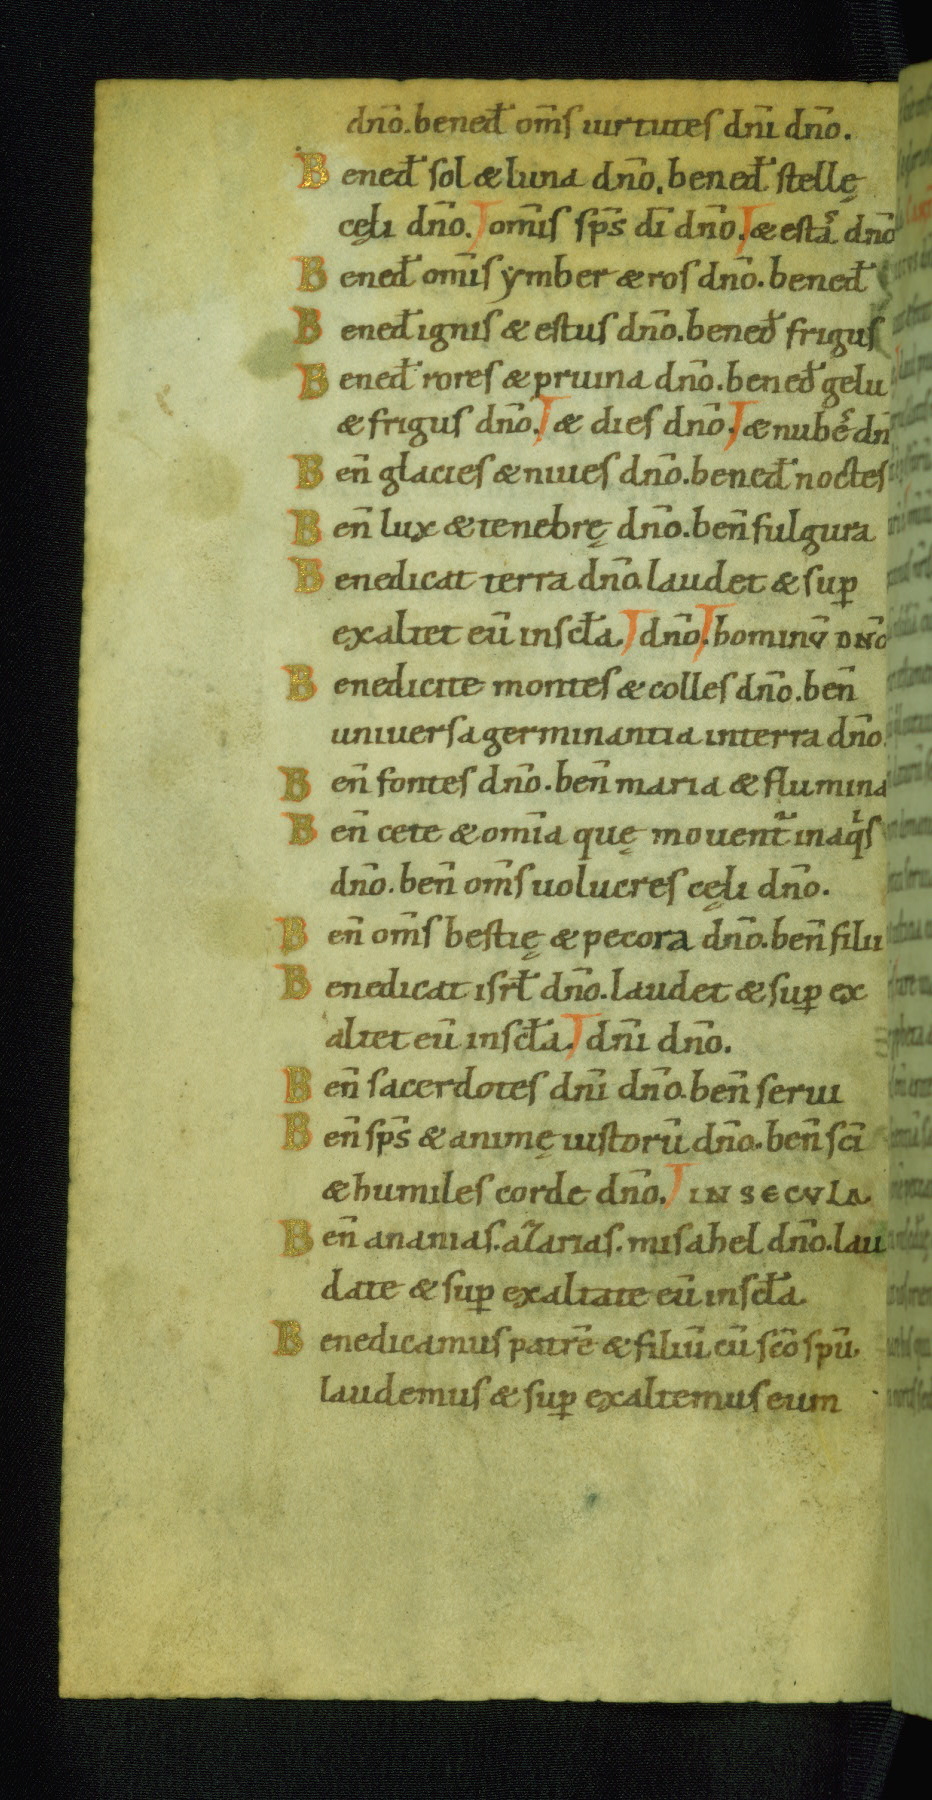 dn̄o. bened̄ om̄s uirtutes dn̄i dn̄o.
Bened̄ sol & luna dn̄o. bened̄ stellę
cęli dn̄o. om̄is sp̄s dī dn̄o. & estā dn̄o
Bened̄ om̄is ẏmber & ros dn̄o. bened̄
Bened̄ ignis & estus dn̄o. bened̄ frigus
Bened̄ rores & pruina dn̄o. bened̄ gelu
& frigus dn̄o. & dies dn̄o. & nube dn̄
Ben̄ glacies & niues dn̄o. bened̄ noctes
Ben̄ lux & tenebrę dn̄o. ben̄ fulgura
Benedicat terra dn̄o. laudet & suꝑ
exaltet eū in scl̄a. dn̄o. hominū DN̄O
Benedicite montes & colles dn̄o. ben̄
uniuersa germinantia in terra dn̄o.
Ben̄ fontes dn̄o. ben̄ maria & flumina
Ben̄ cete & om̄ia quę mouent᷑ in aqⁱs
dn̄o. ben̄ om̄s uolucres cęli dn̄o.
Ben̄ om̄s bestię & pecora dn̄o. ben̄ filii
Benedicat isrl̄ dn̄o. laudet & suꝑ ex
altet eū in scl̄a. dn̄i dn̄o.
Ben̄ sacerdotes dn̄i dn̄o. ben̄ serui
Ben̄ sp̄s & animę iustorū dn̄o. ben̄ sc̄i
& humiles corde dn̄o. IN SECVLA.
Ben̄ ananias. azarias. misahel dn̄o. lau
date & suꝑ exaltate eū in scl̄a.
Benedicamus patrē & filiū cū sc̄o spū.
laudemus & suꝑ exaltemus eum